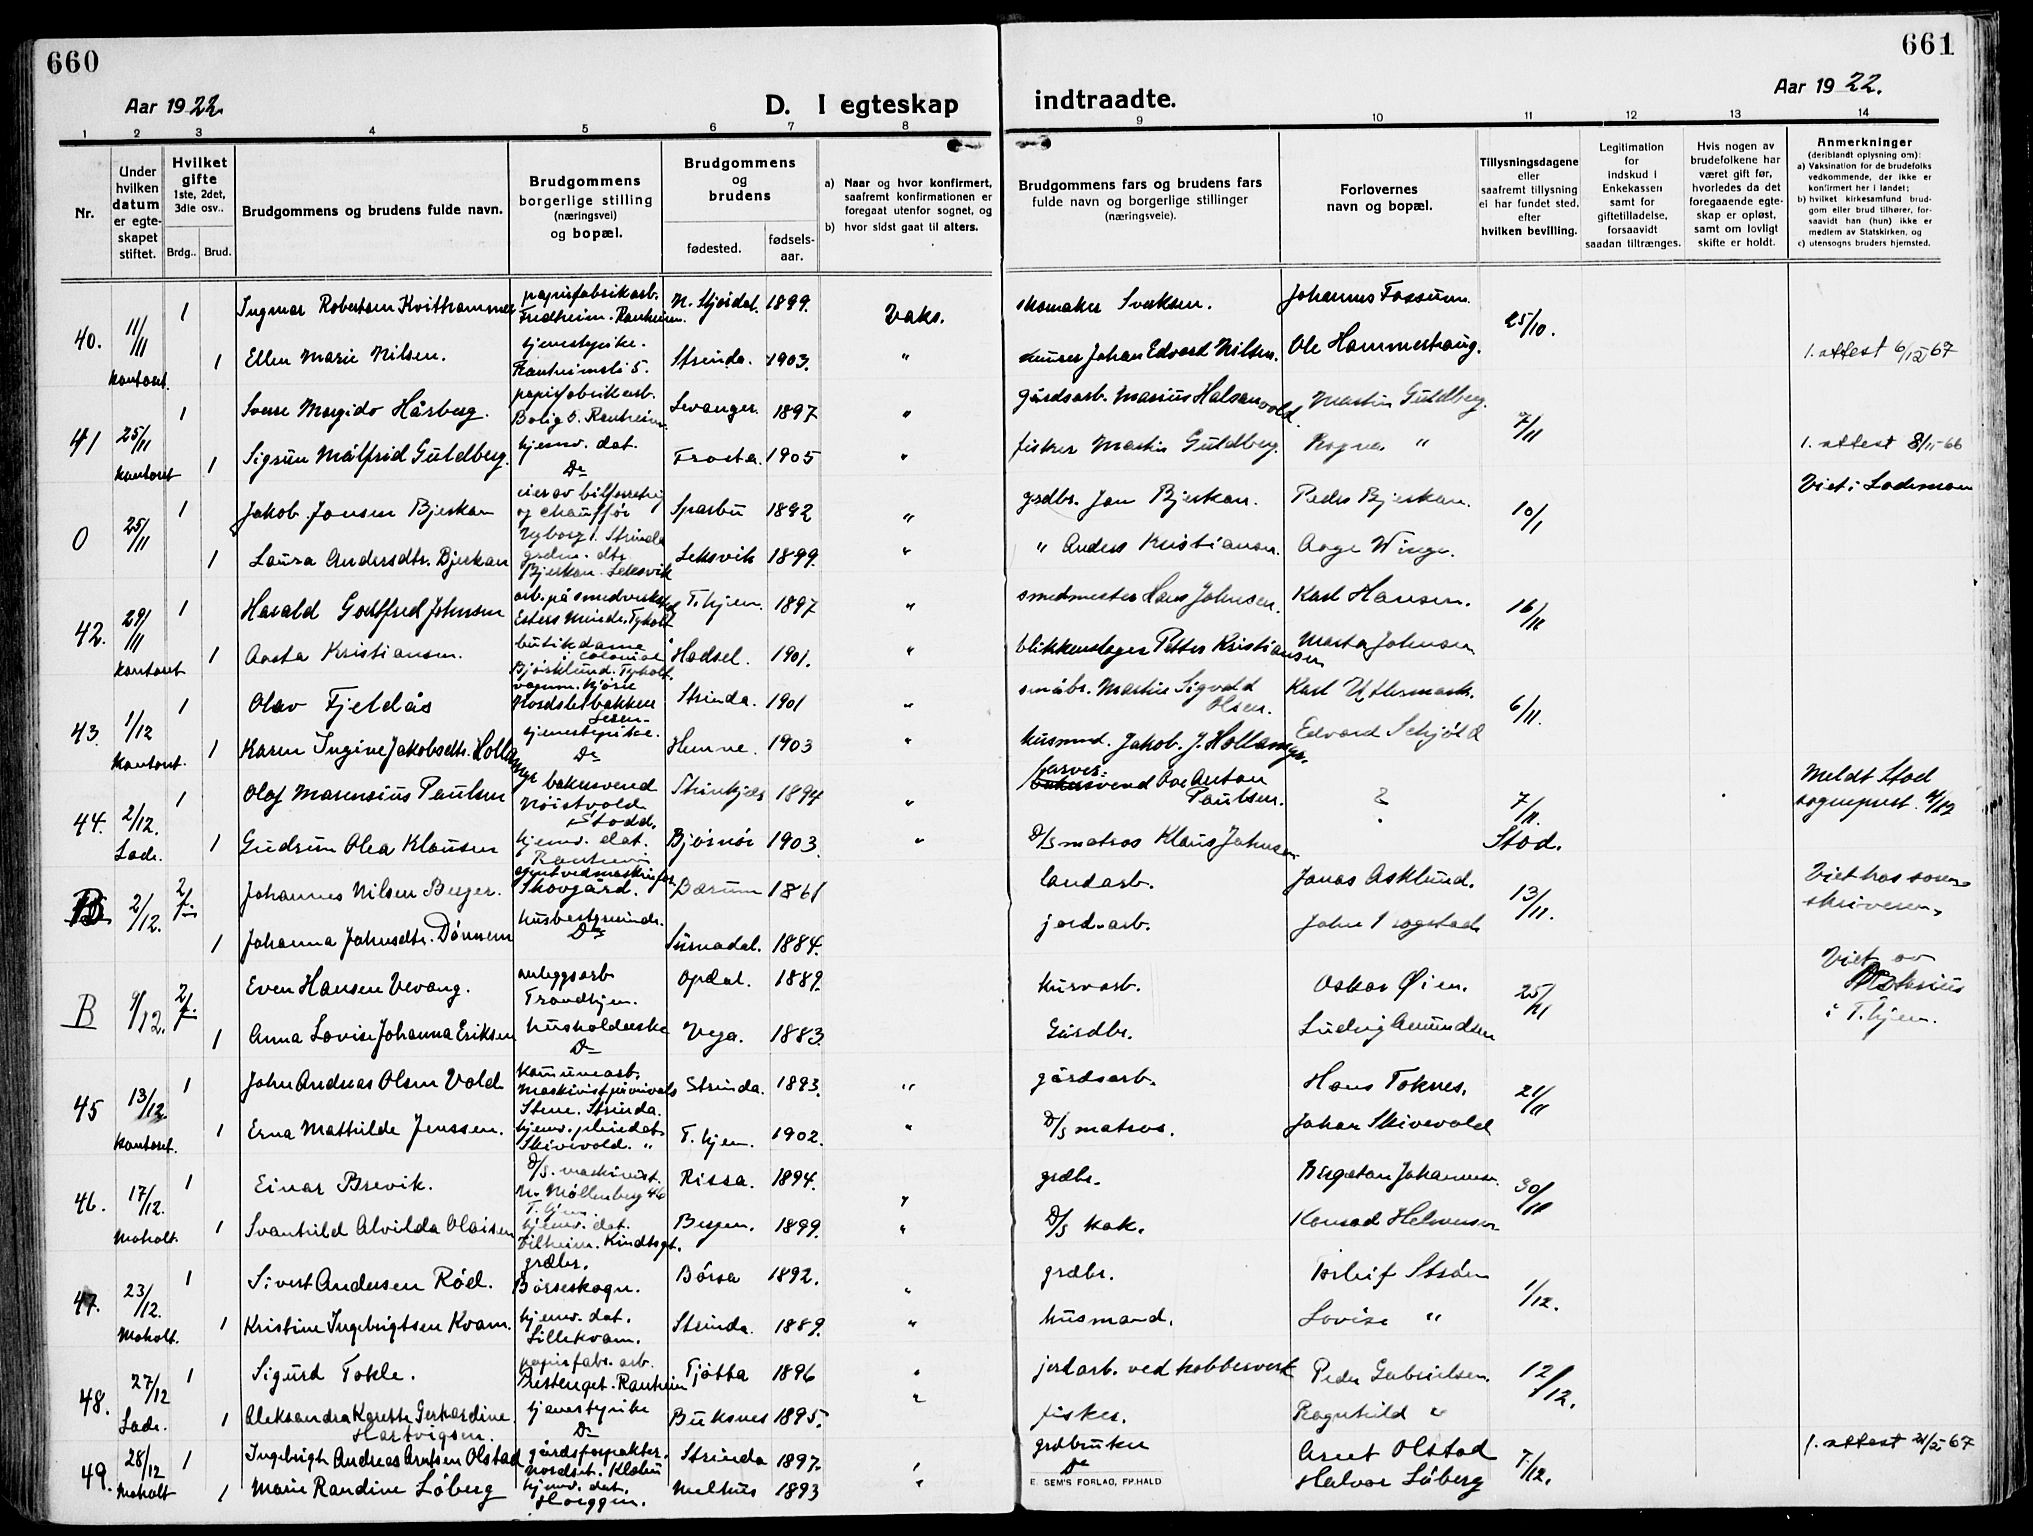 660
661
Aar 1922.
D. I egteskap
indtraadte.
Aar 1922.
1 2 3 4 5 6 7 8 9 10 11 12 13 14
Nr.
Under hvilken datum er egteskapet stiftet.
Hvilket gifte 1ste, 2det, 3die osv..
Brdg.. Brud.
Brudgommens og brudens fulde navn.
Brudgommens borgerlige stilling (næringsvei) og bopæl.
Brudgommens og brudens
fødested. fødselsaar.
a) Naar og hvor konfirmert, saafremt konfirmationen er foregaat utenfor sognet, og
b) hvor sidst gaat til alters.
Brudgommens fars og brudens fars fulde navn og borgerlige stillinger (næringsveie).
Forlovernes navn og bopæl.
Tillysningsdagene eller saafremt tillysning ei har fundet sted, efter hvilken bevilling.
Legitimation for indskud i Enkekassen samt for giftetilladelse, forsaavidt saadan tiltrænges.
Hvis nogen av brudefolkene har været gift før, hvorledes da det foregaaende egteskap er opløst, samt om lovligt skifte er holdt.
Anmerkninger (deriblandt oplysning om):
a) Vaksination for de brudefolks vedkommende, der ikke er konfirmert her i landet;
b) hvilket kirkesamfund brudgom eller brud tilhører, forsaavidt han (hun) ikke er medlem av Statskirken, og
c) utensogns bruders hjemsted.
40. 11/11 kontoret. 1 Ingmar Robertsen Kvithammer papirfabrikarb. Fredheim. Ranheim. N. Stjørdal. 1899. Vaks. skomaker Johannes Fossum. 25/10.
1 Ellen Marie Nilsen. tjenestepike. Strinda. 1903. " Johan Edvard Nilsen. Ole Hammerhaug. 1. attest 6/12 67
41 25/11 kontoret 1 Sverre Morgido Hårberg. papirfabrikarb. Bolig 5. Ranheim. Levanger. 1897 " gårdsarb. Marius Halsanvold. Martin Guldberg. 7/11
1 Sigrun Målfrid Guldberg. hjemv. dat. Do Frosta. 1905 " fisker Martin Guldberg. Ragna " 1. attest 8/11-66
0 25/11 1 Jakob Jansen Bjerkan eier av bilforretn. og chauffør Nyborg. Strinda Sparbu 1892 " grdbr. Jan Bjerkan. Peder Bjerkan. 10/1 Viet i Lademoen
1 Laura Andersdtr. Bjerkan grdm. dtr. Bjerkan. Leksvik Leksvik 1899. " " Anders Kristiansen. Aage Winge.
42. 29/11 kontoret 1 Harald Gottfred Johnsen arb. på smedverksted Esters Minde. Tyholt T.hjem. 1897 " smedmester Hans Johnsen. Karl Hansen. 16/11
1 Aasta Kristiansen. butikdame i Colonial Bjørklund. Tyholt. Hadsel. 1901. " blikkenslager Petter Kristiansen Marta Johnsen
43. 1/12 kontoret. 1 Olav Fjeldås Nordsletbakken Strinda. 1901 " småbr. Martin Sigvald Olsen. Karl Uttermark. 6/11.
1 Karen Ingine Jakobsdtr. Hollamyr tjenestepike. Do Hemne. 1903 " husmnd. Jakob. J. Hollamyr. Edvard Schjöld
44. 2/12. Lade. 1 Olaf Marensius Paulsen bakersvend Stod. Steinkjær 1894 " garver: Ove Anton Paulsen. ? 7/11. Stod. Meldt Stod sogneprest. 4/12
1 Gudrun Olea Klausen hjemv. dat. Ranheim Bjørnør 1903. " D/S matros Klaus Johnsen
B 2/12. 2/ Johannes Nilsen Berger. Skovgård. Bærum 1861 landarb. Jonas Asklund. 13/11. Viet hos sorenskriveren.
1 Johanna Johnsdtr. Dönnem husbestyrerinde. Do Surnadal. 1884. jordarb. John Trogstad
B 9/12. 2/ Even Hansen Vevang. anleggsarb Trondhjem. Opdal. 1889. kurvarb. Oskar Øien. 25/11 Viet av i T.hjem.
1 Anna Lovise Johanna Eriksen husholderske Do Vega. 1883. Gårdbr. Ludvig Amundsen
45 13/12. kontoret. 1 John Andreas Olsen Vold komunearb. Stene. Strinda. Strinda. 1893. " gårdsarb. Hans Toknes. 21/11
1 Erna Mathilde Jenssen. Skivevold. " T.hjem. 1902. " D/S matros. Johan Skivevold
46. 17/12. Moholt. 1 Einar Brevik. D/S. maskinist. N. Møllenberg 46 T.hjem Rissa. 1894. " grdbr. Johannesen. 30/11
1 Svanhild Alvilda Olaisen hjemv. dat. Vilheim. Kindtsgt. Bergen. 1899. " D/S kok. Konrad Helmersen
47. 23/12. Moholt. 1 Sivert Andersen Röd. grdbr. Börseskogn. Börsa 1892. " grdbr. Ström 1/12.
1 Kristine Ingebrigtsen Kvam. hjemv. dat. Lillekvam. Strinda. 1889. " husmand. Lovise "
48. 27/12 Lade. 1 Sigurd Tokle. papirfabr. arb. Prestenget. Ranheim Tjøtta 1896 " jordarb. ved kobberverk Peder Gabrielsen. 12/12.
1 Aleksandra Karette Gerhardine Hartvigsen. tjenestepike Do Buksnes 1895. " fisker. Ragnhild "
49. 28/12 Moholt 1 Ingebrigt Andreas Arntsen Olstad gårdsforpakter. Nordset. Klæbu Strinda 1897. " grdbruker Arnt Olstad 7/12. 1. attest 21/2-67
1 Marie Randine Löberg hjemv. dat. Hoeggen. Melhus 1893 " Do Halvor Löberg
E. SEM'S FORLAG, FR.HALD